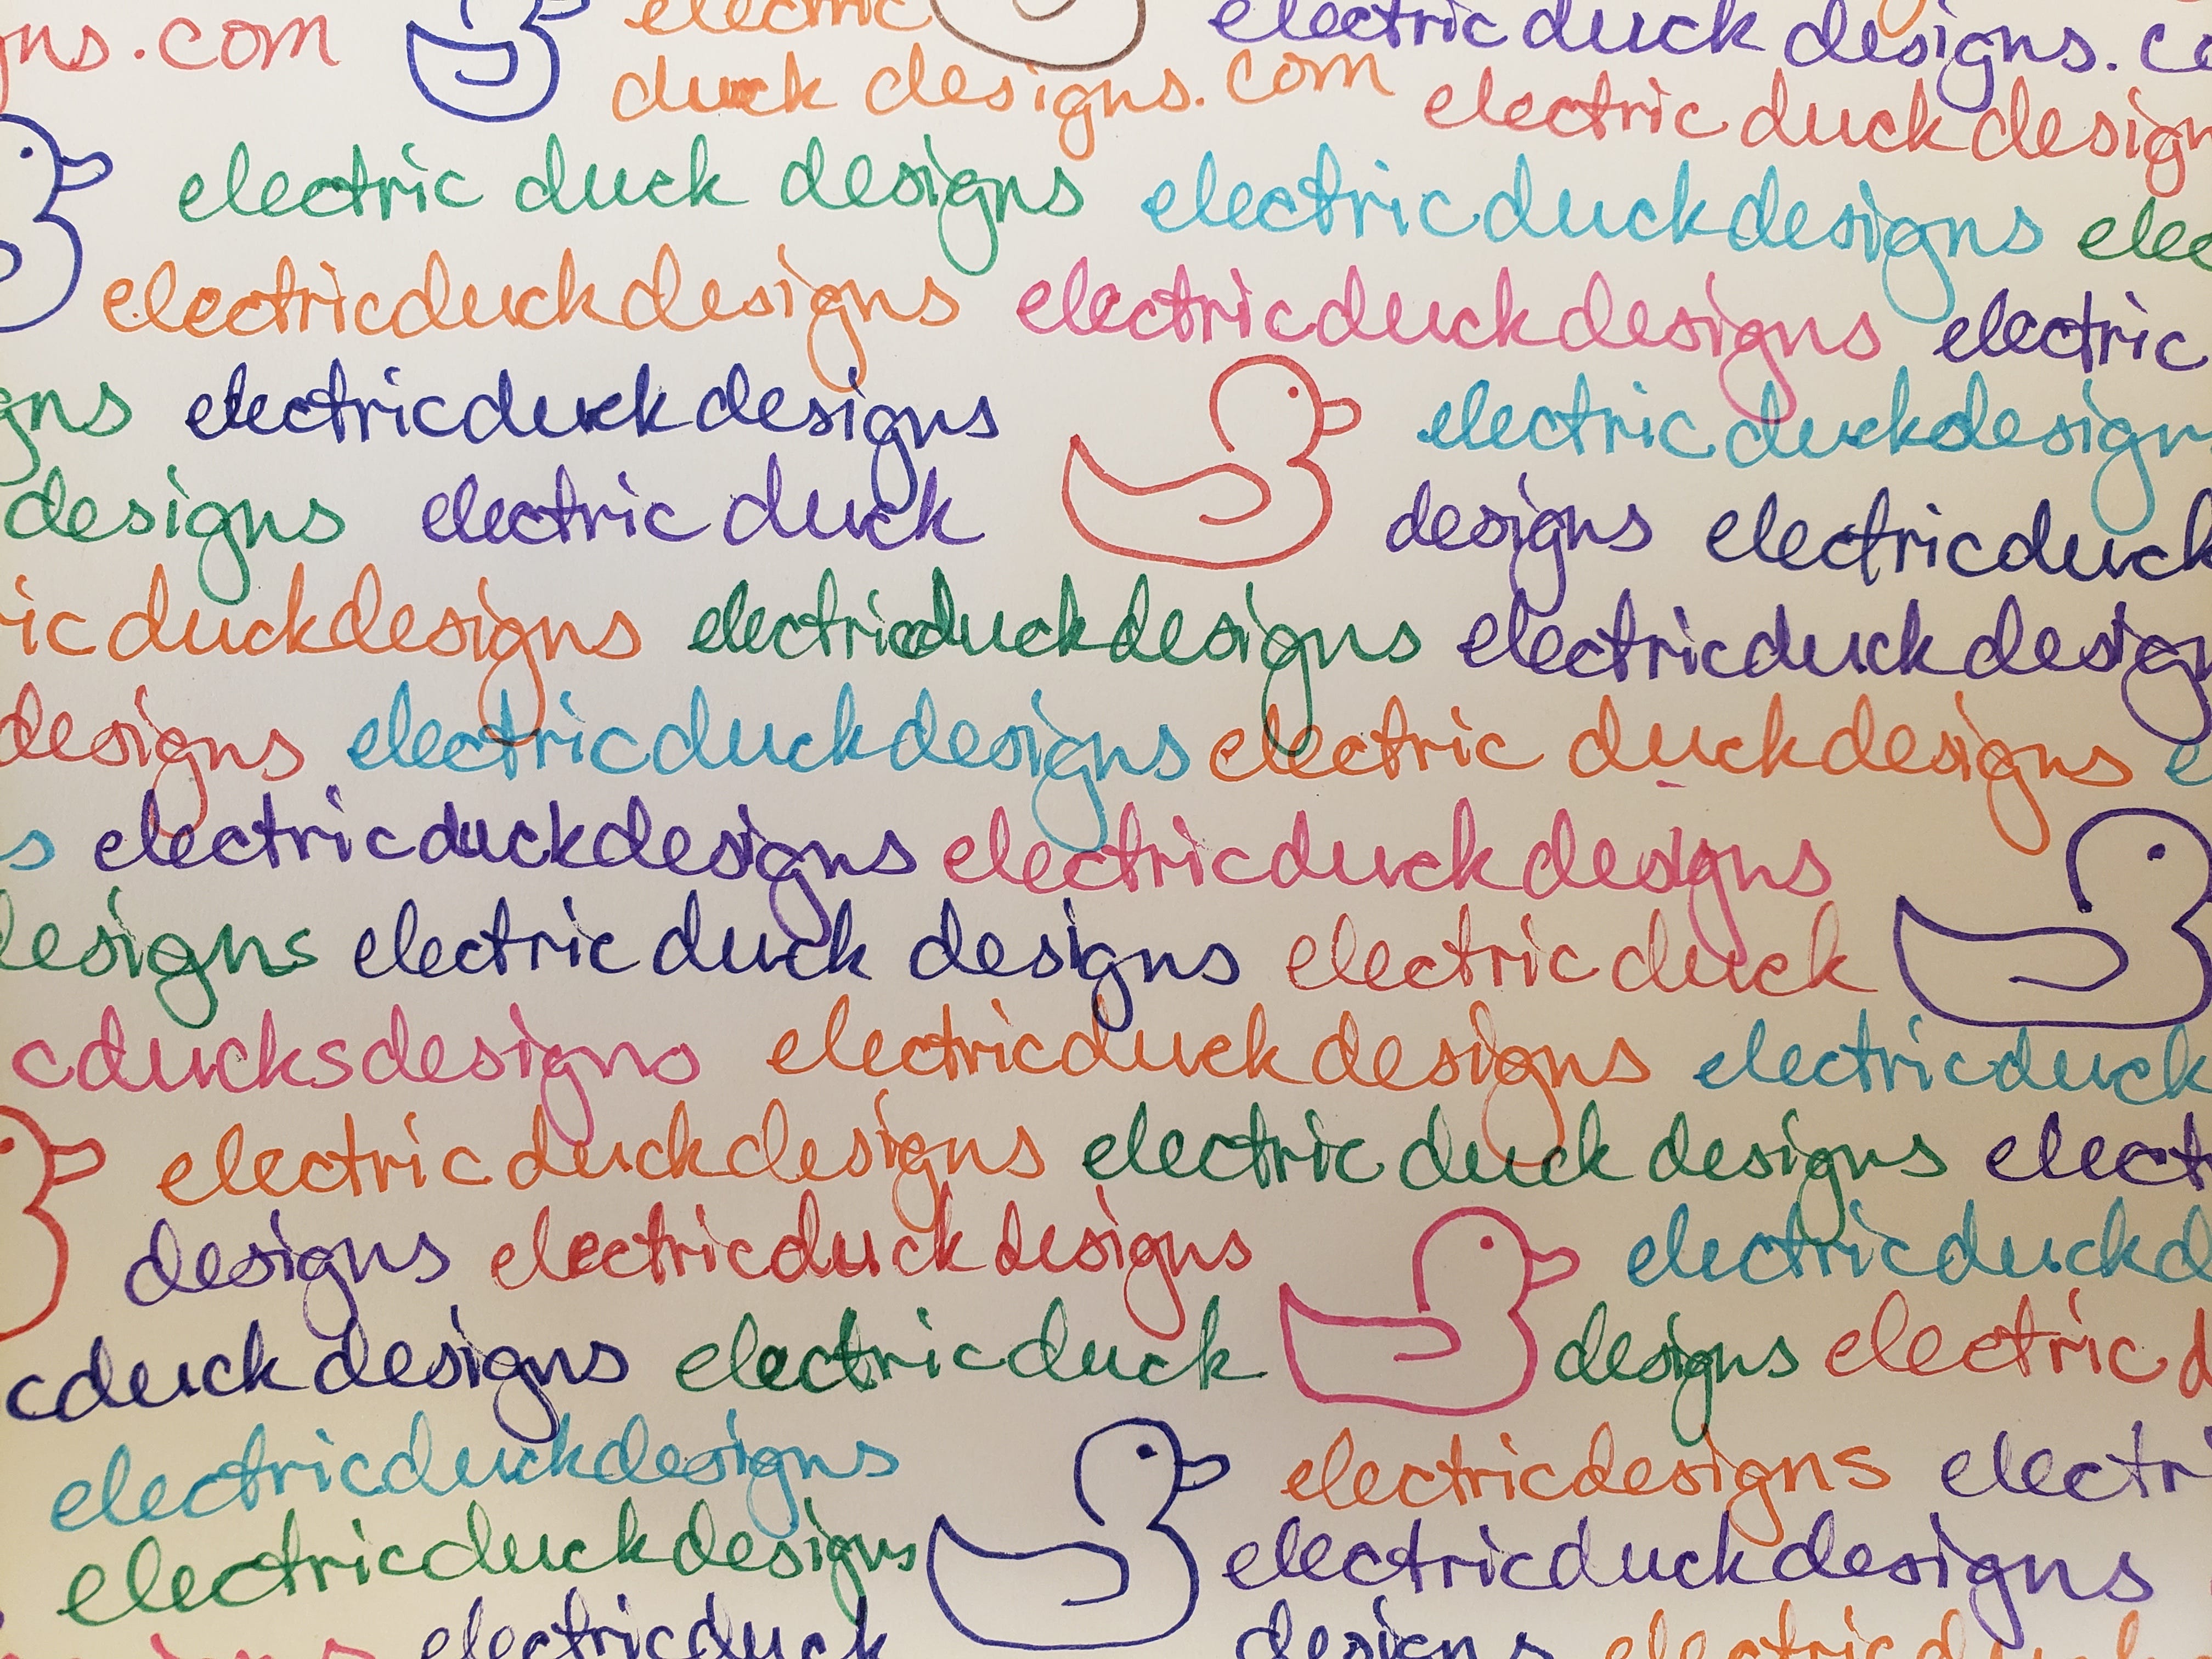 gns.com electric electricduckdesigns.co
duck designs.com electric duck design
electric duck designs electricduckdesigns elec
electricduckdesigns electricduckdesigns electric
gns electricduckdesigns electricduckdesign
designs electric duck designs electricduck
ric duckdesigns electricduckdesigns electricduckdesig
designs electricduckdesigns electric duckdesigns e
s electricduckdesigns electricduckdesigns
designs electric duck designs electric duck
cducksdesigns electricduckdesigns electricduck
electric duckdesigns electric duck designs elect
designs electricduck designs electricduckd
cduck designs electricduck designs electric d
electricduckdesigns electricdesigns electri
electricduckdesigns electricduckdesigns
electricduck designs electricduck